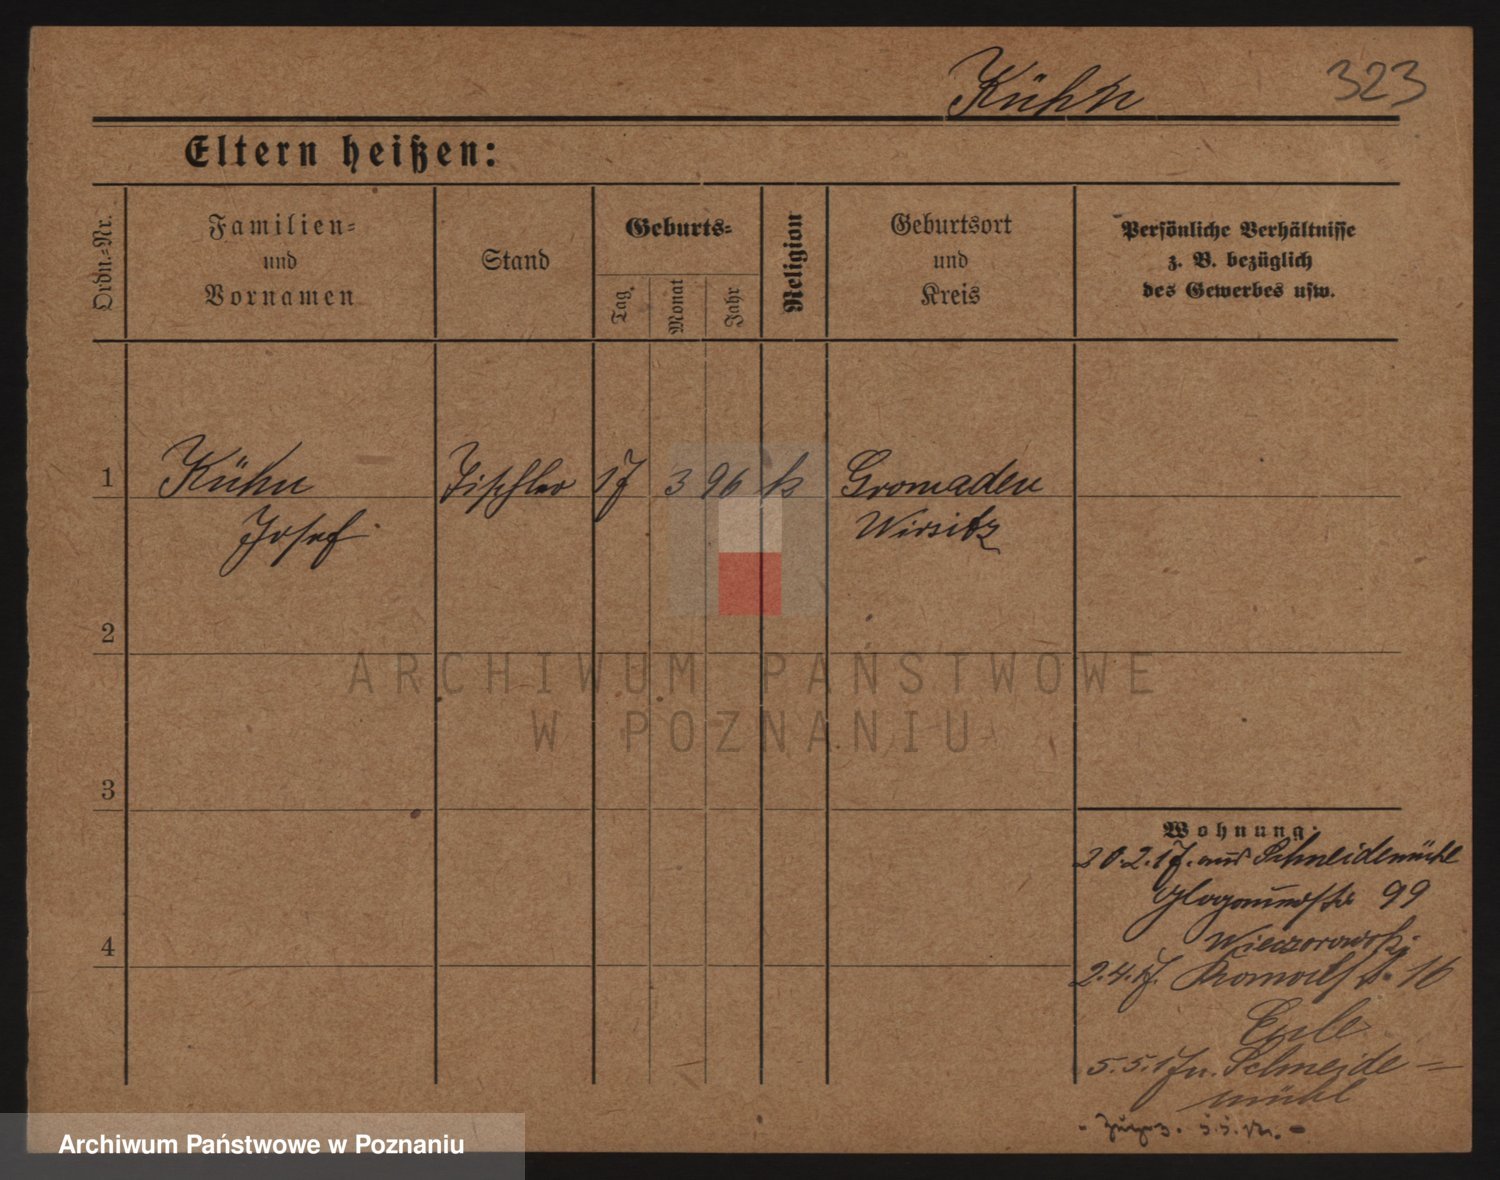 Kühn 323
Eltern heißen:
Ordn.-Nr.
Familien-
und
Vornamen
Stand
Geburts-
Tag
Monat
Jahr
Religion
Geburtsort
und
Kreis
Persönliche Verhältnisse
z. B. bezüglich
des Gewerbes usw.
1 Kühn Tischler 17 3 96 k Gromaden
Josef Wirsitz
2
3
4
ARCHIWUM PAŃSTWOWE
W POZNANIU
Wohnung:
20.2.17. aus Schneidemühl
Glogauerstr 99
2.4.17. 16
Eule
5.5.17 n. Schneide=
mühl
5.5.
Archiwum Państwowe w Poznaniu